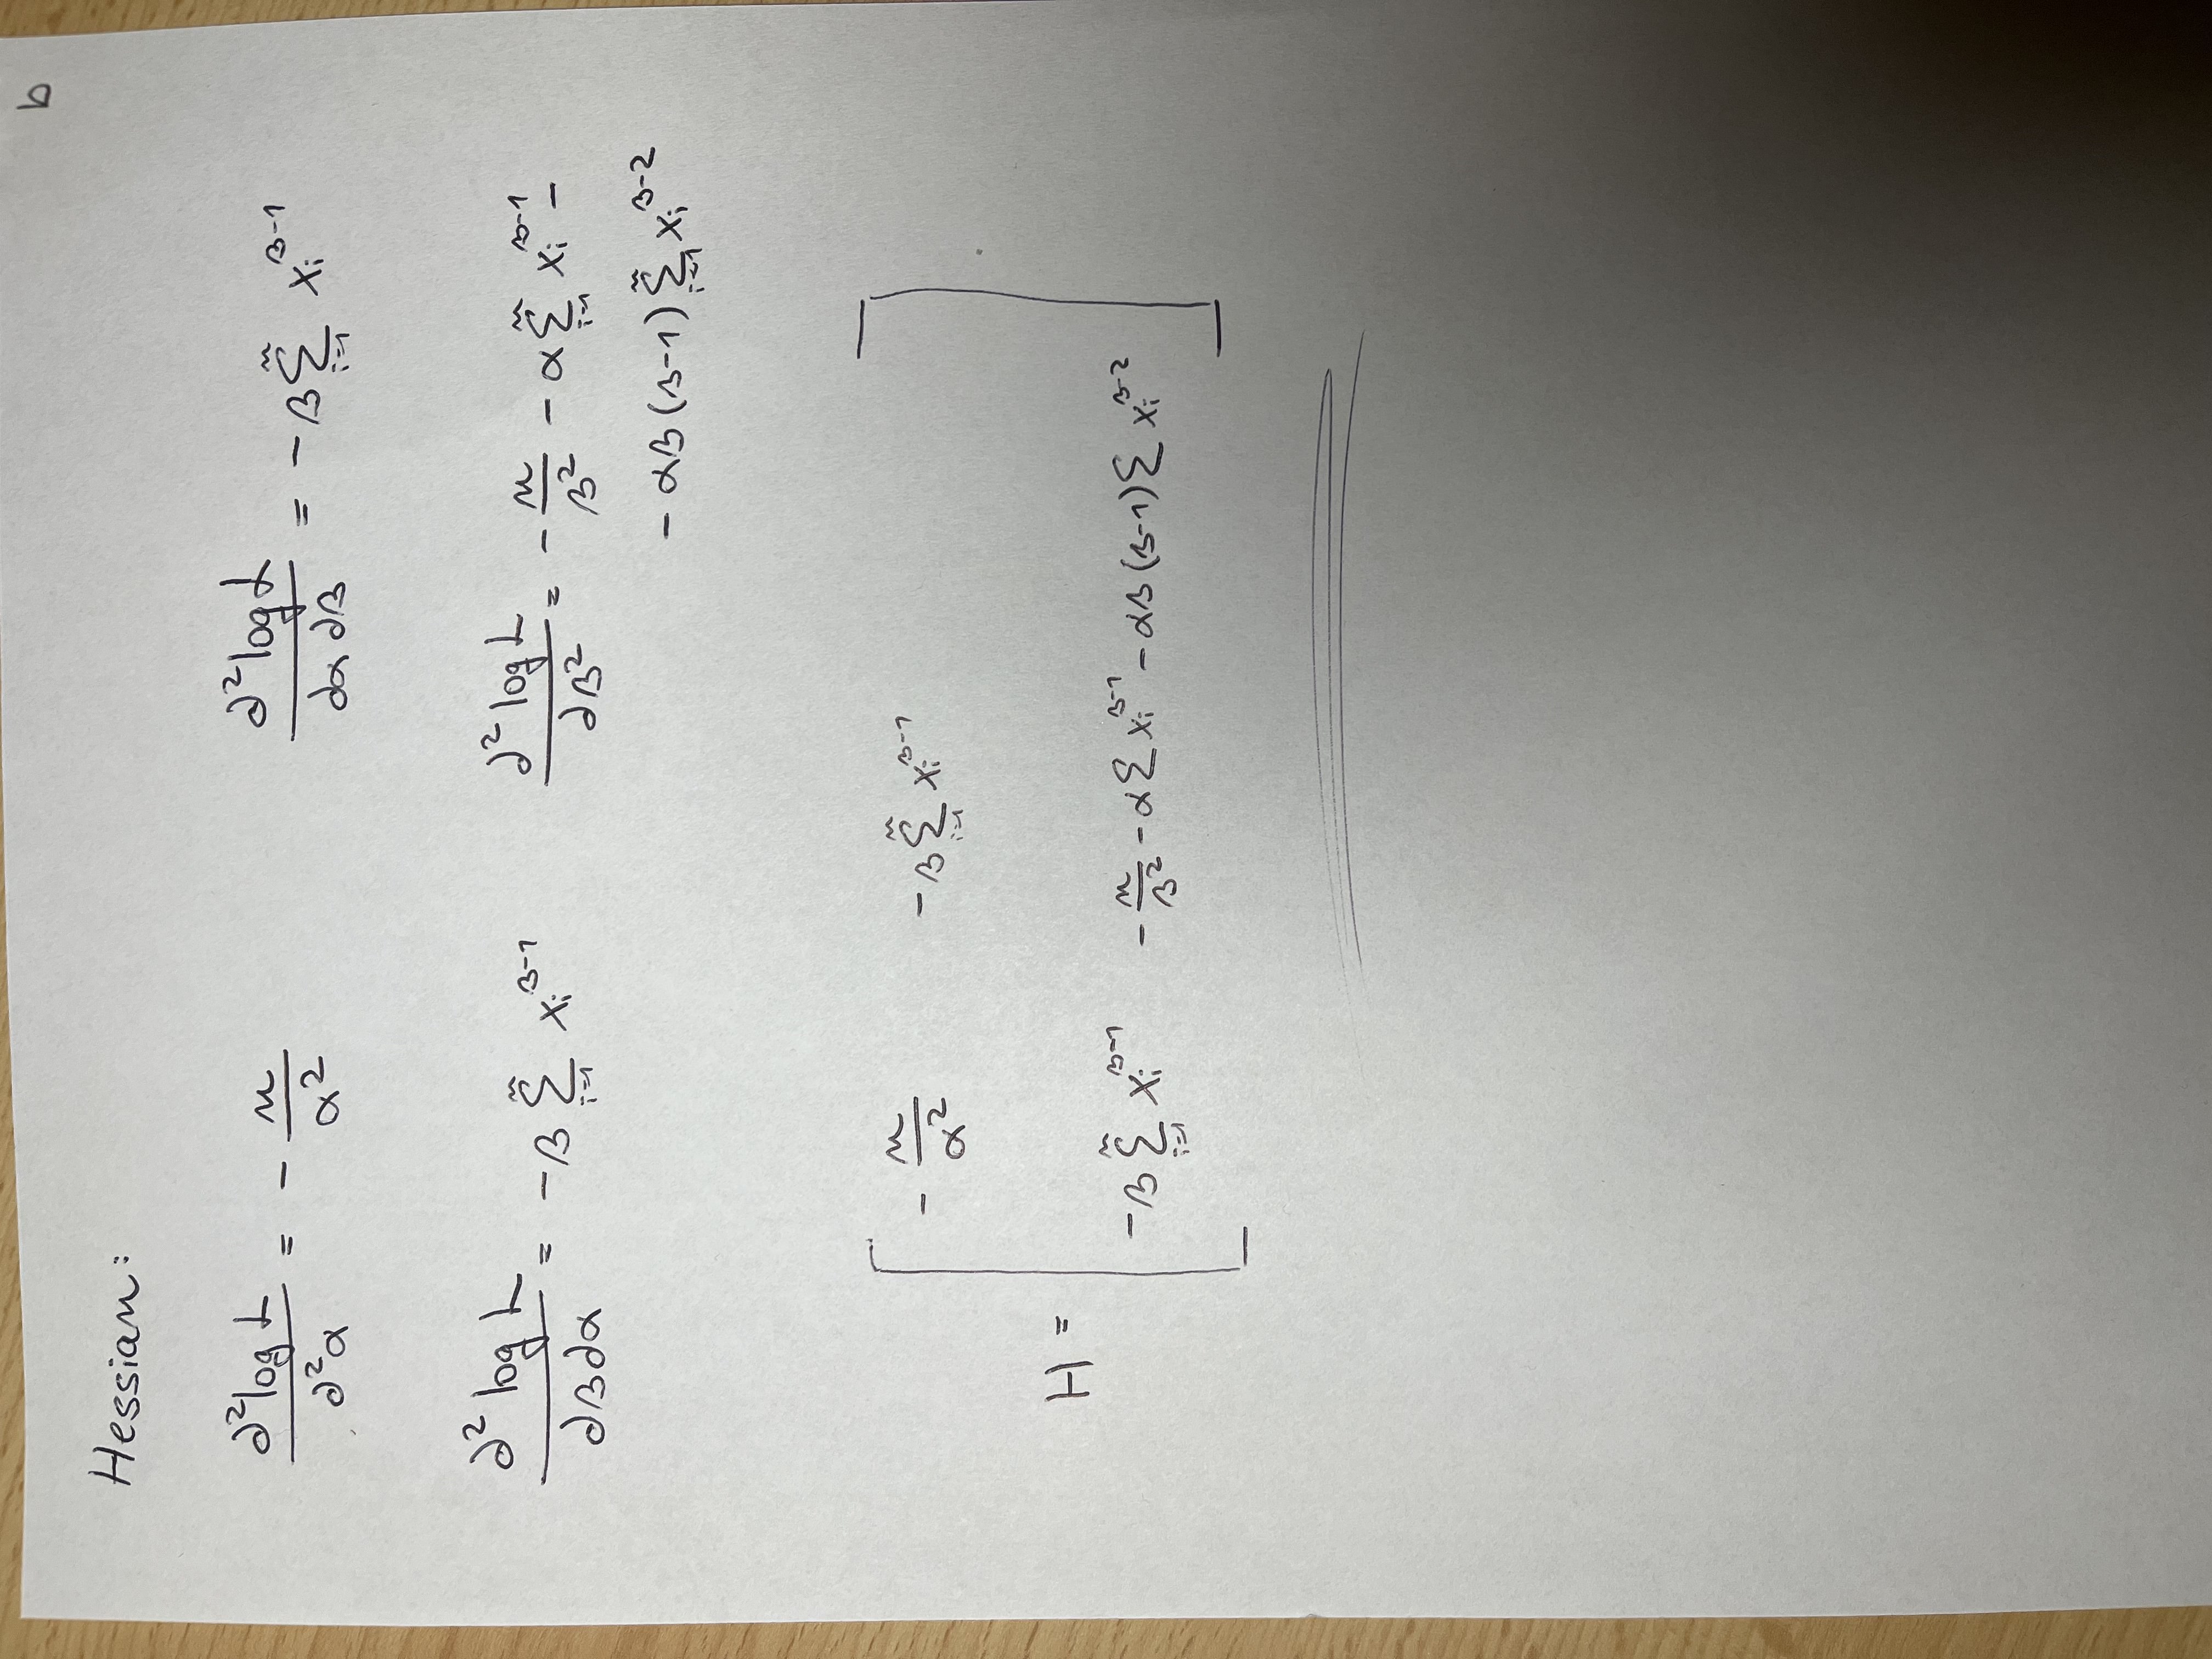 b
Hessian:
∂² log L / ∂²α = - n / α²
∂² log L / ∂α ∂β = - β ∑_{i=1}^{n} x_i^{β-1}
∂² log L / ∂β ∂α = - β ∑_{i=1}^{n} x_i^{β-1}
∂² log L / ∂β² = - n / β² - α ∑_{i=1}^{n} x_i^{β-1} -
- αβ (β-1) ∑_{i=1}^{n} x_i^{β-2}
- n / α² - β ∑_{i=1}^{n} x_i^{β-1}
H =
- β ∑_{i=1}^{n} x_i^{β-1} - n / β² - α ∑ x_i^{β-1} - αβ (β-1) ∑ x_i^{β-2}